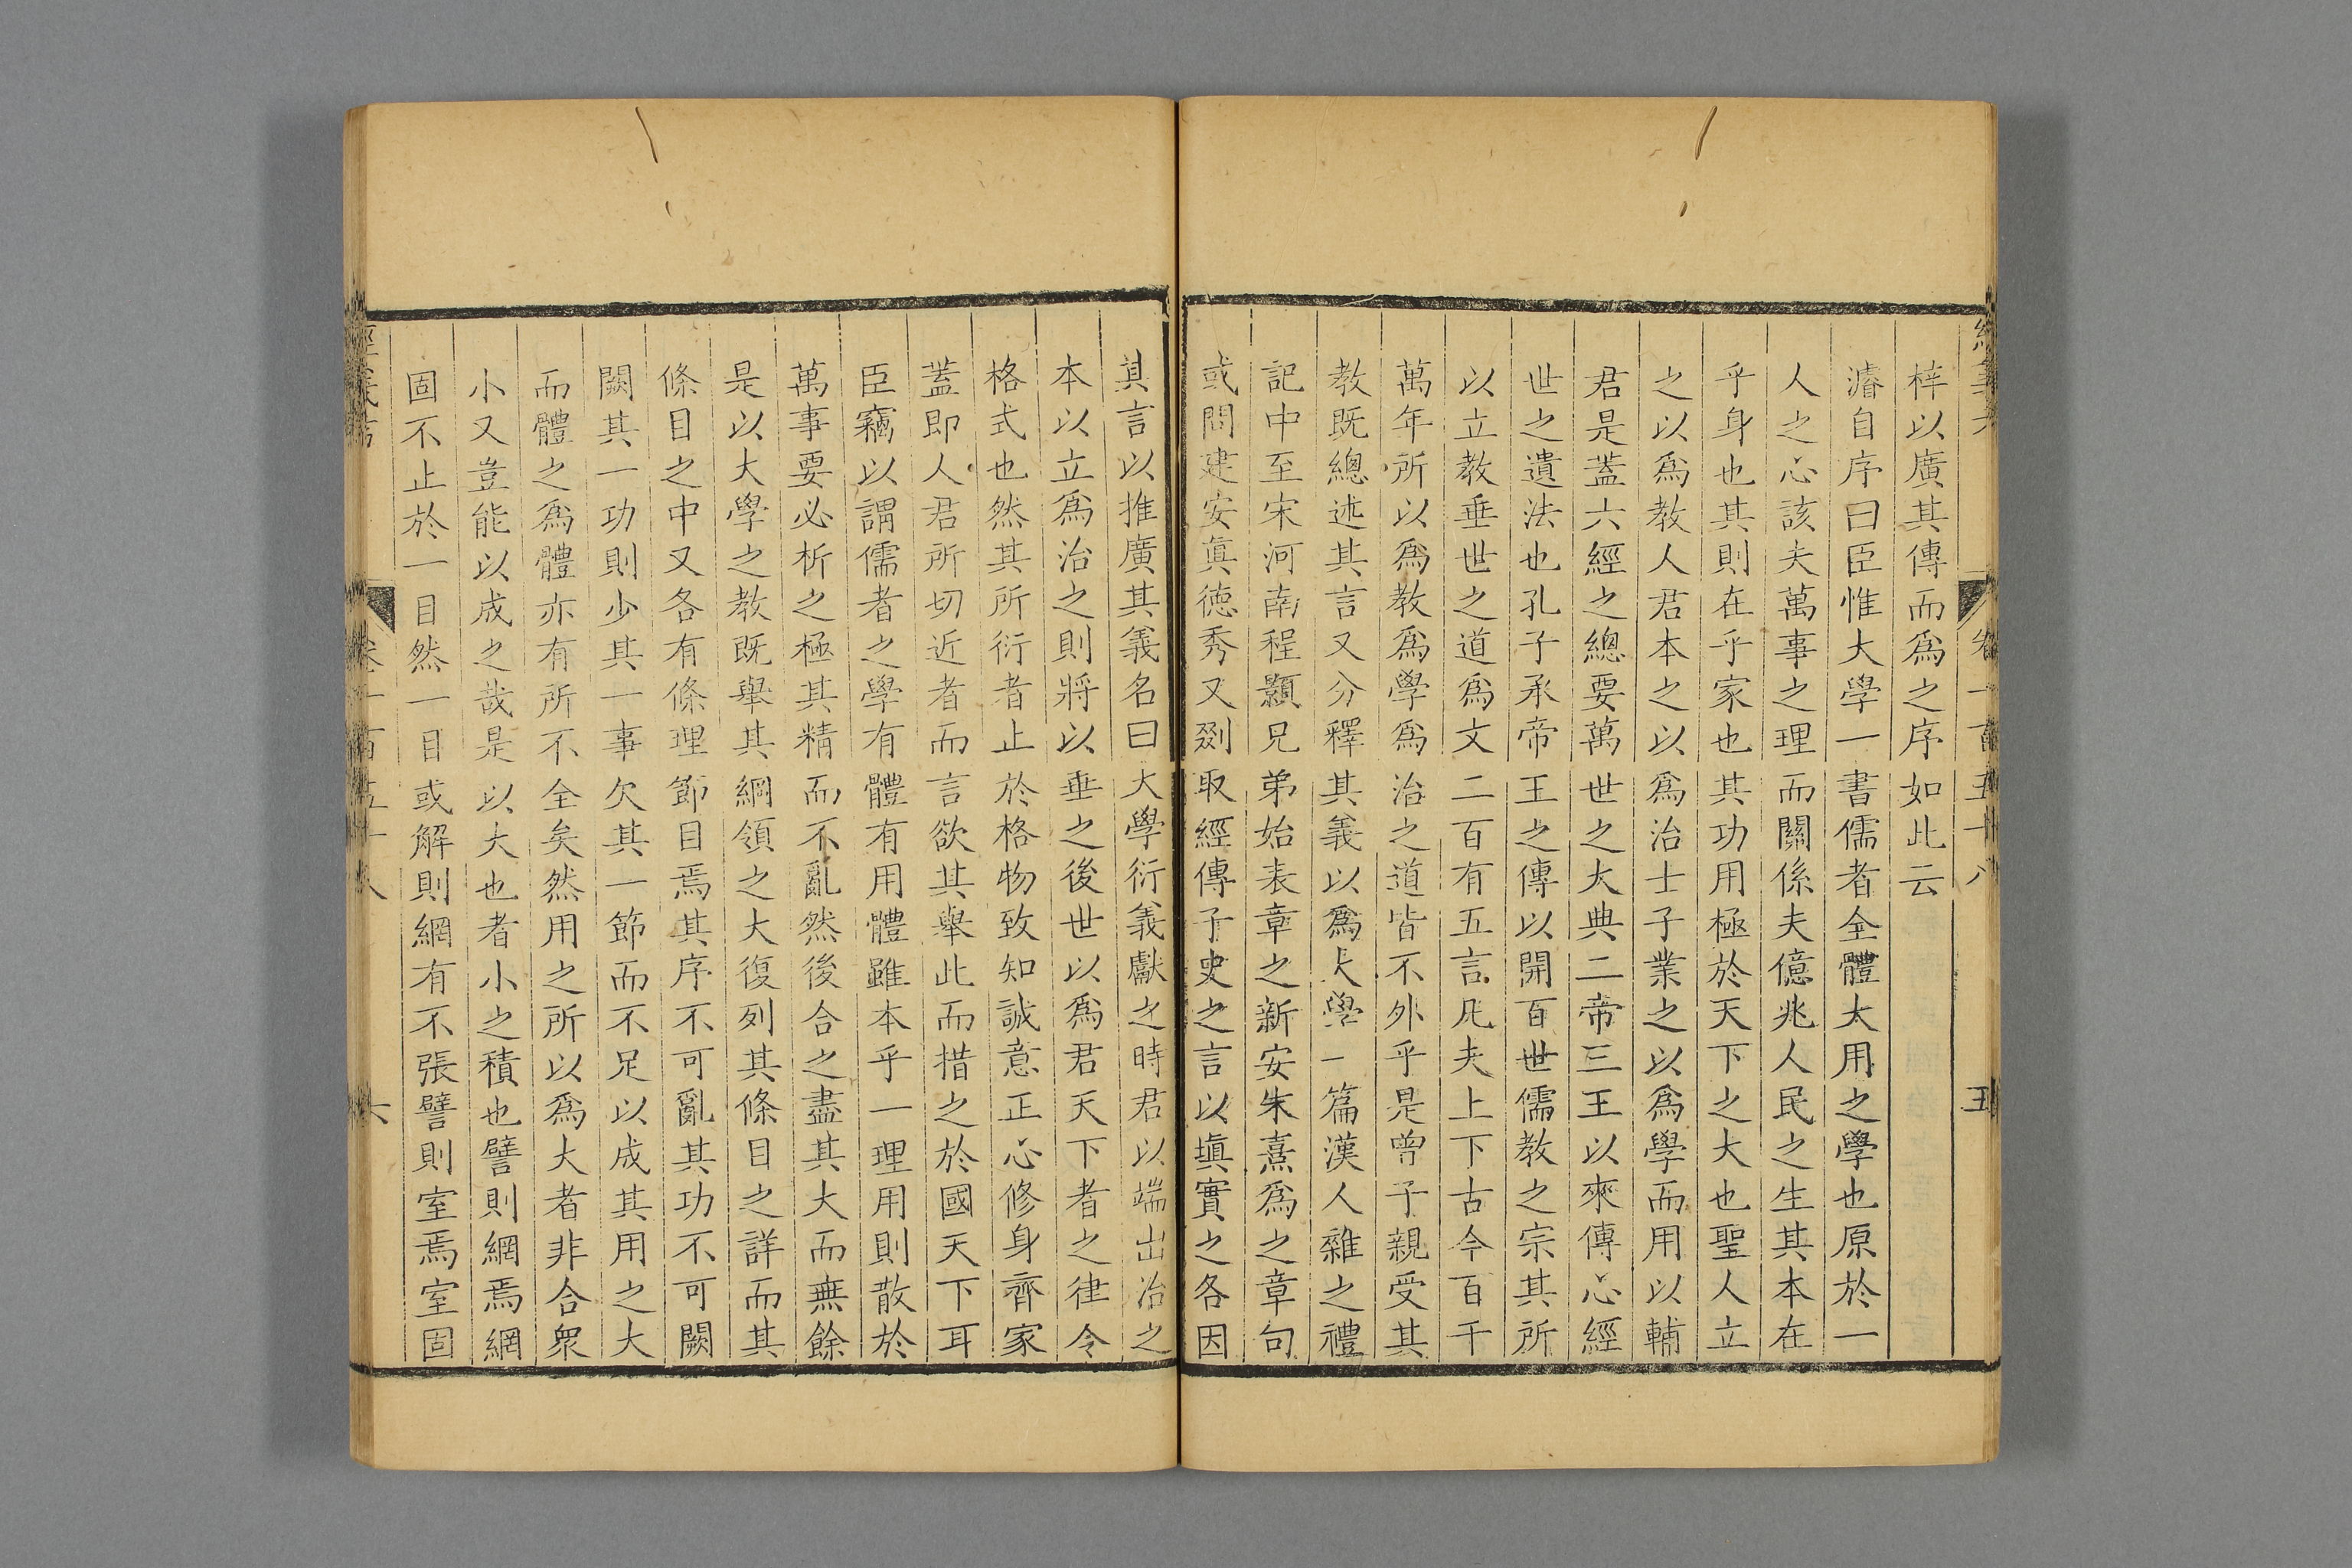 梓以廣其傳而爲之序如此云
濬自序曰臣惟大學一書儒者全體大用之學也原於一
人之心該夫萬事之理而關係夫億兆人民之生其本在
乎身也其則在乎家也其功用極於天下之大也聖人立
之以爲教人君本之以爲治士子業之以爲學而用以輔
君是葢六經之總要萬世之大典二帝三王以來傳心經
世之遺法也孔子承帝王之傳以開百世儒教之宗其所
以立教垂世之道爲文二百有五言凡夫上下古今百千
萬年所以爲教爲學爲治之道皆不外乎是曾子親受其
教既總述其言又分釋其義以爲大學一篇漢人雜之禮
記中至宋河南程顥兄弟始表章之新安朱熹爲之章句
或問建安眞德秀又剟取經傳子史之言以塡實之各因
其言以推廣其義名曰大學衍義獻之時君以端出治之
本以立爲治之則將以垂之後世以爲君天下者之律令
格式也然其所衍者止於格物致知誠意正心修身齊家
葢即人君所切近者而言欲其舉此而措之於國天下耳
臣竊以謂儒者之學有體有用體雖本乎一理用則散於
萬事要必析之極其精而不亂然後合之盡其大而無餘
是以大學之教既舉其綱領之大復列其條目之詳而其
條目之中又各有條理節目焉其序不可亂其功不可闕
闕其一功則少其一事欠其一節而不足以成其用之大
而體之爲體亦有所不全矣然用之所以爲大者非合衆
小又豈能以成之哉是以大也者小之積也譬則網焉網
固不止於一目然一目或解則網有不張譬則室焉室固
卷一百五十八
六